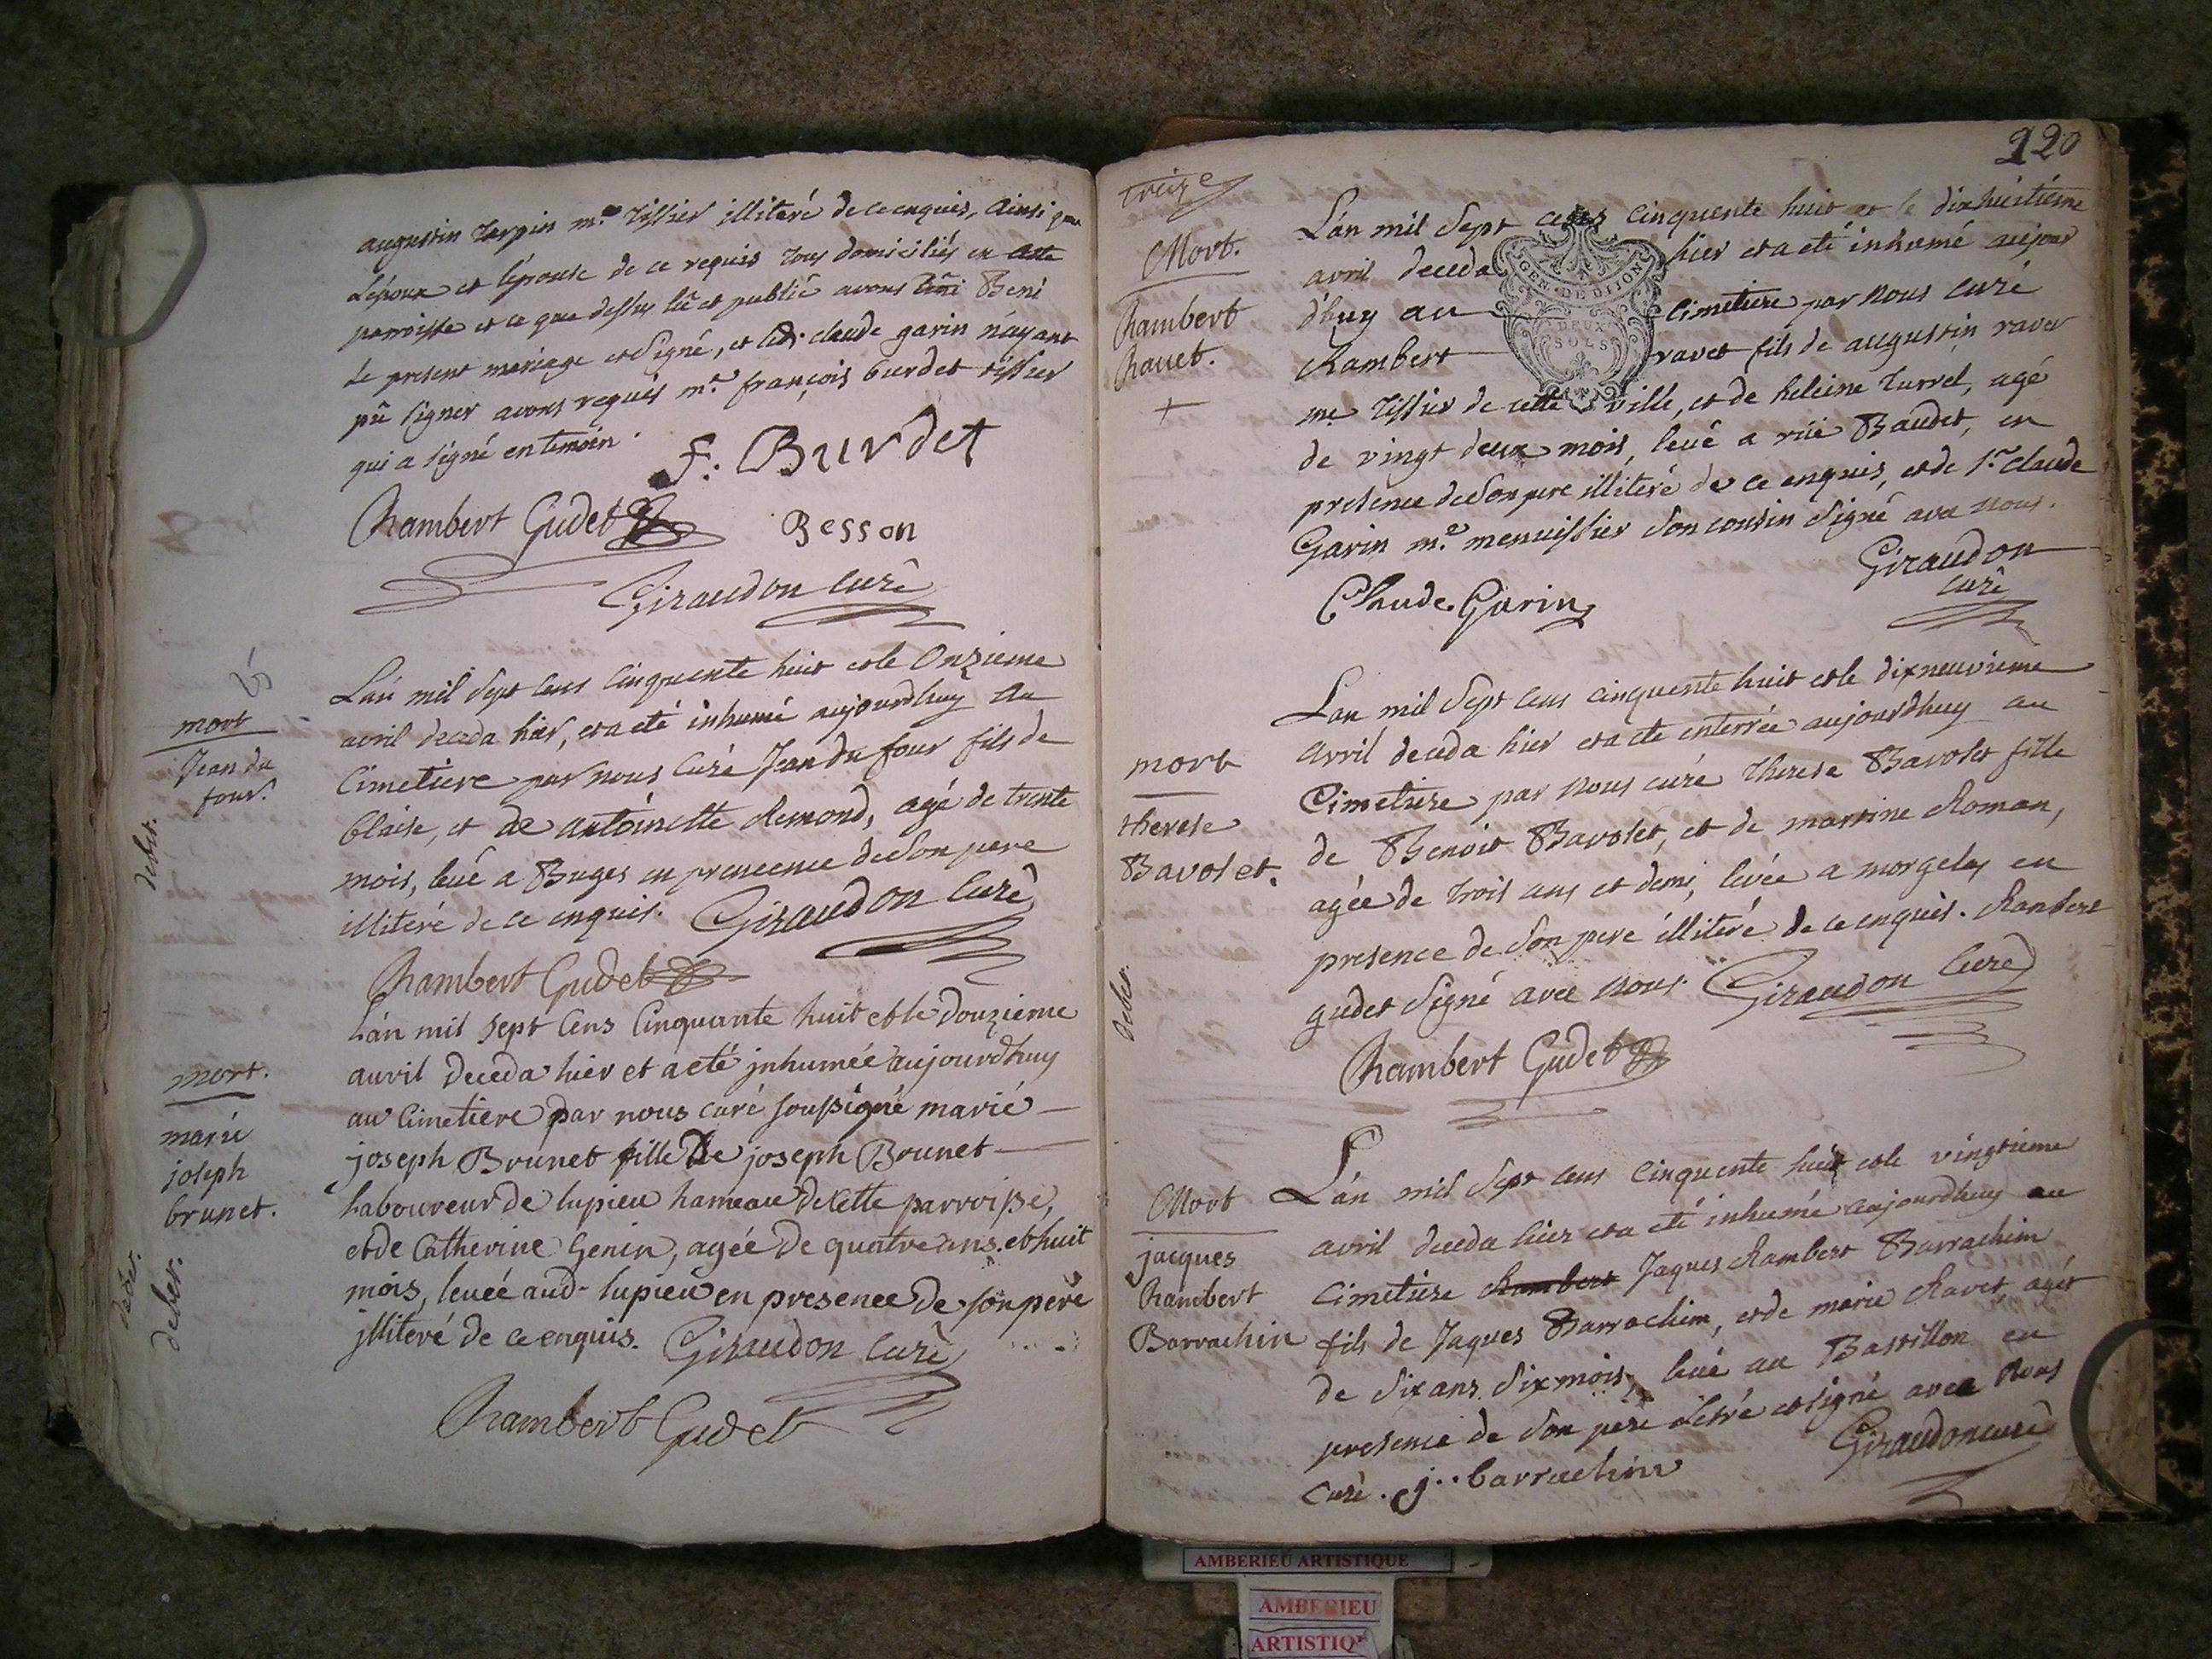 augustin Tarpin m.e Tissier illiteré de ce enquis, ainsi que
L'époux et l'épouse de ce requis tous domiciliés en cette
parroisse et ce que dessus lû et publié avons Beni
Le present mariage et signé, et led. claude garin n'ayant
pû signer avons requis m.e françois burdet tissier
qui a signé en temoin.
F. Burdet
Rambert Gudet
Besson
Giraudon curé
mort
Jean du
four.
deber.
L'an mil sept cens cinquente huit et le Onzieme
avril deceda hier, et a eté inhumé aujourdhuy au
Cimetiere par nous curé Jean du four fils de
blaise, et de antoinette Remond, agé de trente
mois, levé a Buges en presence de son pere
illiteré de ce enquis. Giraudon curé
Rambert Gudet
mort.
marie
joseph
brunet.
deber.
deber.
L'an mil sept cens Cinquante huit et le Douzieme
auvril deceda hier et a eté jnhumée aujourdhuy
au Cimetiere par nous curé soussigné marie
joseph Brunet fille De joseph Brunet
laboureur de lupieu hameau de cette parroisse,
et de Catherine Genin, agée De quatre ans et huit
mois, leueé aud. lupieu en presence De son pere
jlliteré de ce enquis. Giraudon curé
Rambert Gudet
120
treize
Mort.
Rambert
Ravet.
+
L'an mil sept cens cinquente huit et le dixhuitieme
avril deceda hier et a eté inhumé aujour
d'huy au Cimetiere par nous curé
Rambert ravet fils de augustin ravet
me Tissier de cette ville, et de heleine Turrel, agé
de vingt deux mois, levé a rüe Baudet, en
presence de son pere illiteré de ce enquis, et de Sr. claude
Garin m.e menuissier son cousin signé avec nous.
GEN. DE DIJON
DEUX
SOLS
Claude Garin
Giraudon
curé
mort
therese
Bavolet.
deber.
L'an mil sept cens cinquente huit et le dixneuvieme
avril deceda hier et a eté enterrée aujourdhuy au
Cimetiere par nous curé therese Bavolet fille
de Benoit Bavolet, et de martine Roman,
agée de trois ans et demi, levée a morgelas en
presence de son pere illiteré de ce enquis. Rambert
gudet signé avec nous. Giraudon curé
Rambert Gudet
Mort
jacques
Rambert
Barrachin
L'an mil sept cens cinquente huit et le vingtieme
avril deceda hier et a eté inhumé aujourdhuy au
Cimetiere Rambert Jaques Rambert Barrachim
fils de Jaques Barrachim, et de marie Ravet, agé
de six ans six mois, levé au Bastillon en
presence de son pere letré et signé avec Nous
curé. j.. barrachin
Giraudon curé
AMBERIEU ARTISTIQUE
AMBERIEU
ARTISTIQ